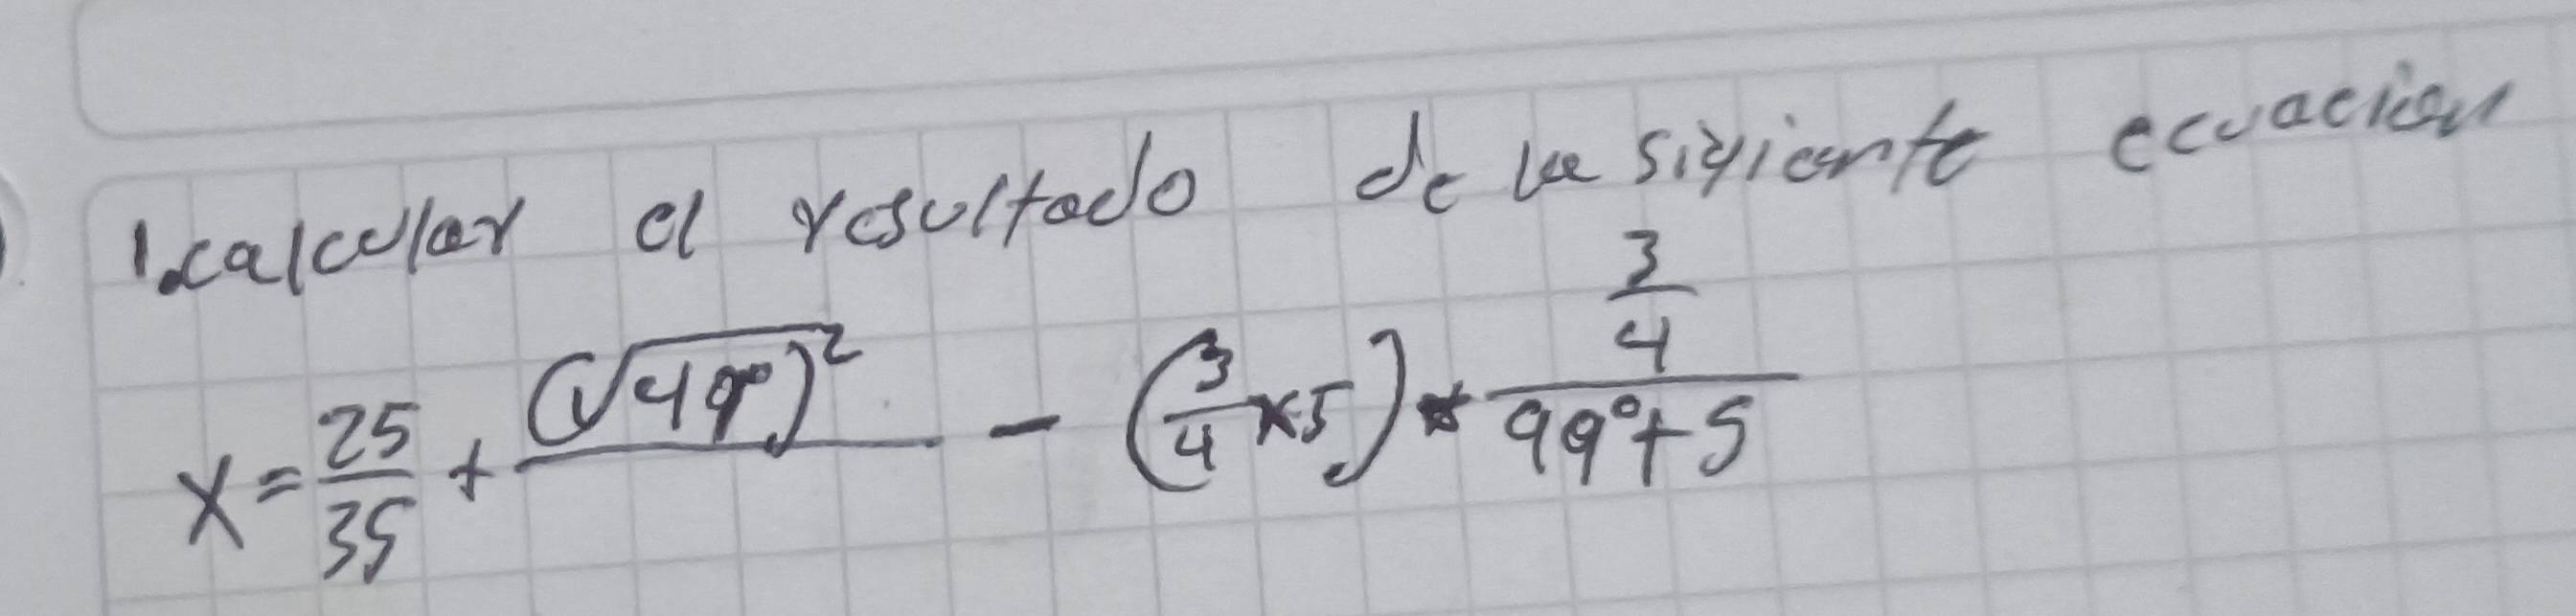 1. calcular el resultado de la siguiente ecuacion
x = 25/35 + (√49⁰)² / - (3/4 x 5) * 3/4 / 99⁰ + 5